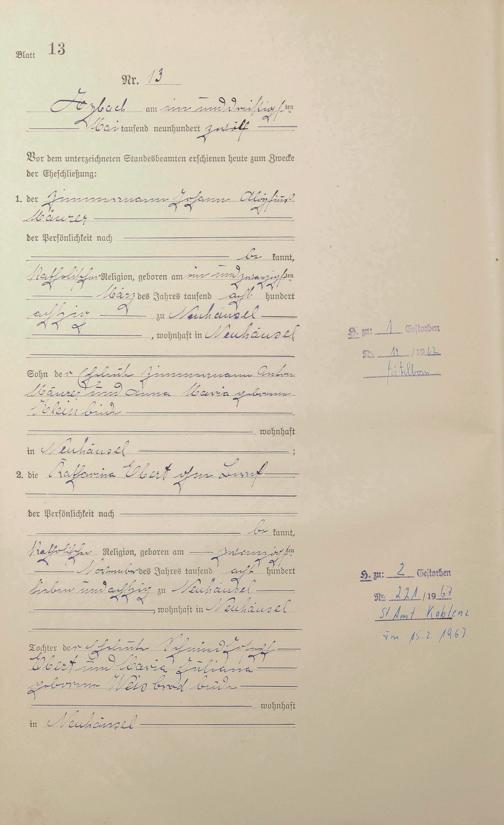 Blatt 13
Nr. 13
Arzbach am ein und dreißigsten
Mai tausend neunhundert zwölf
Vor dem unterzeichneten Standesbeamten erschienen heute zum Zwecke
der Eheschließung:
1. der Zimmermann Johann
Mäurer
der Persönlichkeit nach
be kannt,
Katholischer Religion, geboren am ein und zwanzigsten
März des Jahres tausend acht hundert
achtzig zu Neuhäusel
, wohnhaft in Neuhäusel
Sohn der Eheleute Zimmermann Anton
Mäurer und Anna Maria geborene
Klein beide
wohnhaft
in Neuhäusel ;
2. die Katharina Ebert ohne Beruf
der Persönlichkeit nach
be kannt,
Katholischer Religion, geboren am zwanzigsten
November des Jahres tausend acht hundert
sieben und achtzig zu Neuhäusel
, wohnhaft in Neuhäusel
Tochter der Eheleute
Ebert und Maria Juliana
geborene Weisbrod beide
wohnhaft
in Neuhäusel
H. zu: 1 Gestorben
Nr. 11 / 1962
H. zu: 2 Gestorben
Nr. 221 / 1967
St Amt Koblenz
am 15.2.1967